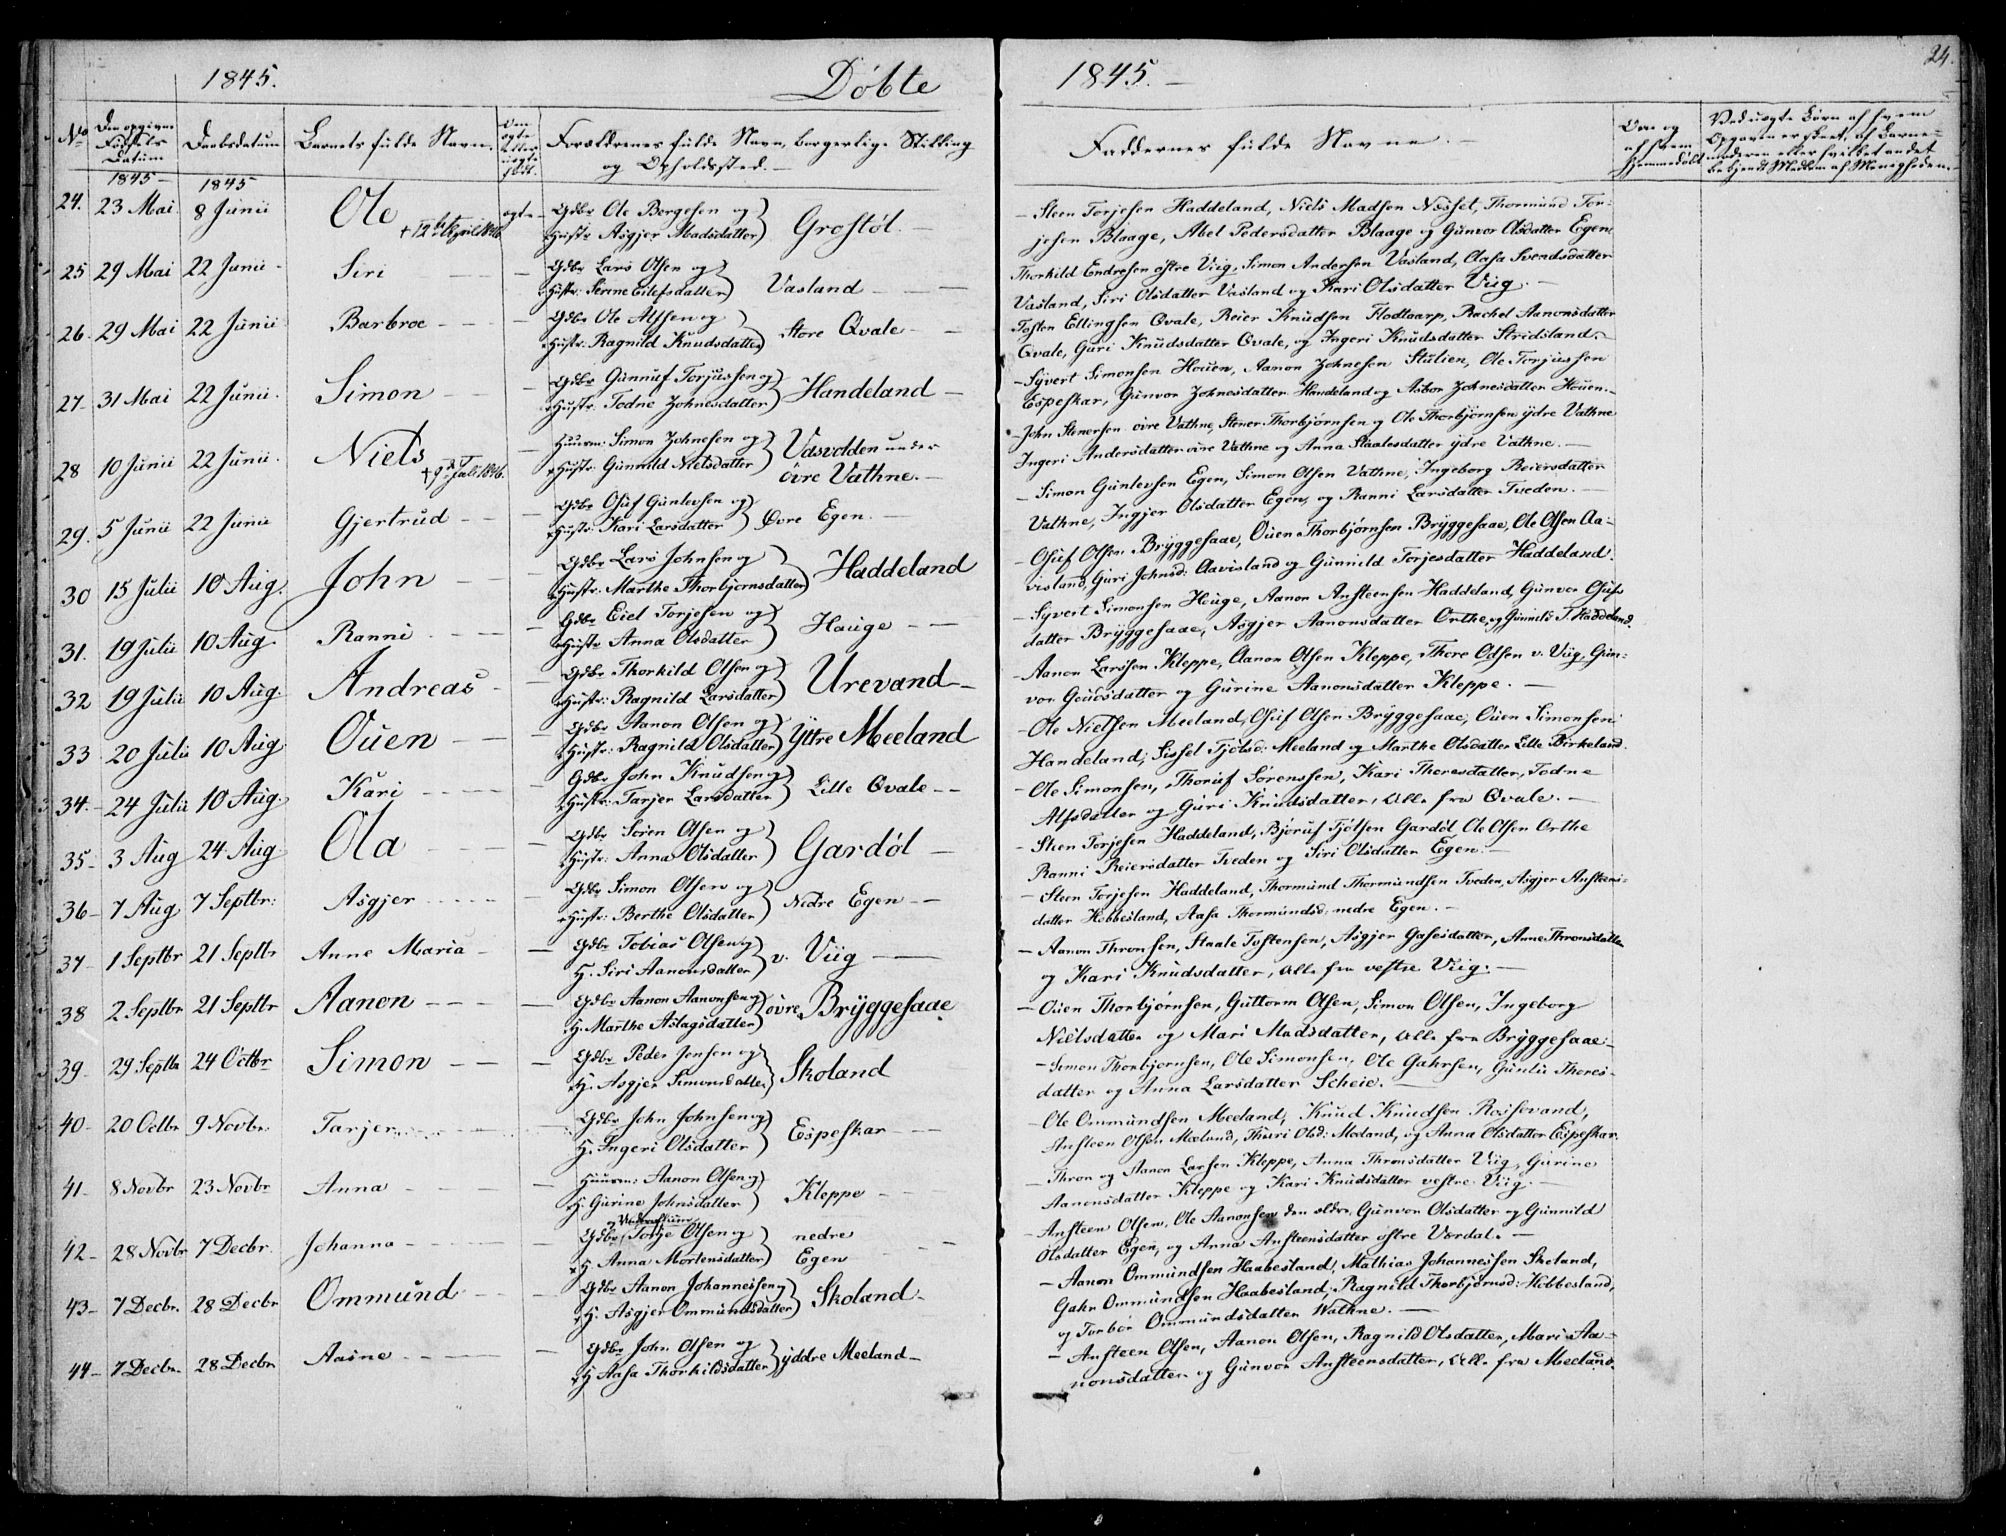 24.
1845. Döbte 1845.
No Den opgivne Födsels Datum Daabsdatum Barnets fulde Navn. Om ægte eller uægte födt. Forældrenes fulde Navn, borgerlige Stilling og Opholdssted. Faddernes fulde Navne. Om og af hvem Hjemmedöbt
1845 1845
24. 23 Mai 8 Junii Ole +12te April 1846 ægte Gdbr Ole Borgesen og
Hustr. Asgjer Madsdatter Grostöl.
Steen Torjesen Haddeland, Niels Madsen Næsset, Thormund Tor-
jesen Blaage, Abel Pedersdatter Blaage og Gunvor Olsdatter Egen
25 29 Mai 22 Junii Siri Gdbr Lars Olsen og
Hustr. Serine Eilefsdatter Vasland
Thorkild Endresen östre Viig, Simon Andersen Vasland, Aasa Svendsdatter
Vasland, Siri Olsdatter Vasland og Kari Olsdatter Viig.
26. 29 Mai 22 Junii Barbroe Gdbr Ole Alfsen og
Hustr. Ragnild Knudsdatter Store Qvale
Tosten Ellingsen Qvale, Reier Knudsen Flottorp, Rachel Aanonsdatter
Qvale, Guri Knudsdatter Qvale, og Ingeri Knudsdatter Stridsland.
27 31 Mai 22 Junii. Simon Gdbr Gunnuf Torjussen og
Hustr. Todne Johnesdatter Handeland
Syvert Simonsen Houen, Aanon Johnesen Stulien, Ole Torjussen
Espeskar, Gunvor Johnesdatter Handeland og Asbor Johnesdatter Houen.
28 10 Junii 22 Junii. Niels +9de Juli 1846. Huusm: Simon Johnesen og
Hustr Gunnild Nielsdatter Vasvolden under
övre Vathne.
John Stenersen övre Vathne, Stener Thorbjörnsen og Ole Thorbjörnsen ydre Vathne
Ingeri Andersdatter övre Vathne og Anna Staalesdatter ydre Vathne.
29. 5 Junii 22 Junii Gjertrud Gdbr Osuf Gunlevsen og
Hustr. Kari Larsdatter Övre Egen.
Simon Gunlevsen Egen, Simon Olsen Vathne, Ingeborg Reiersdatter
Vathne, Ingjer Olsdatter Egen, og Ranni Larsdatter Tveden.
30 15 Julii 10 Aug. John Gdbr Lars Johnsen og
Hustr. Marthe Thorbjornsdatter Haddeland
Osuf Olsen Bryggesaae, Ouen Thorbjörnsen Bryggesaae, Ole Olsen Aa-
visland, Guri Johnsd: Aavisland og Gunnild Torjesdatter Haddeland.
31. 19 Julii 10 Aug Ranni Gdbr Eiel Torjesen og
Hustr Anna Olsdatter Hauge
Syvert Simonsen Houge, Aanon Ansteensen Haddeland, Gunvor Osufs
datter Bryggesaae, Asgjer Aanonsdatter Orthe, og Gunnild T. Haddeland.
32 19 Julii 10 Aug. Andreas Gdbr Thorkild Olsen og
Hustr. Ragnild Larsdatter Urevand
Aanon Larssen Kleppe, Aanon Olsen Kleppe, Thore Odsen v. Viig, Gun-
vor Goudsdatter og Gurine Aanonsdatter Kleppe.
33 20 Julii 10 Aug Ouen Gdbr Aanon Olsen og
Hustr: Ragnild Olsdatter Yttre Meeland
Ole Nielsen Meeland, Osuf Olsen Bryggesaae, Ouen Simonsen
Handeland, Sissel Tjölsd: Meeland og Marthe Olsdatter Lille Birkeland.
34. 24 Julii 10 Aug. Kari Gdbr John Knudsen og
Hustr. Tarjer Larsdatter Lille Qvale
Ole Simonsen, Thoruf Sörenssen, Kari Thoresdatter, Todne
Alfsdatter og Guri Knudsdatter, alle fra Qvale.
35 3 Aug 24 Aug. Ola Gdbr Sören Olsen og
Hustr: Anna Olsdatter Gardöl
Steen Torjesen Haddeland, Björuf Tjölsen Gardöl, Ole Olsen Orthe
Ranni Reiersdatter Tveden og Siri Olsdatter Egen.
36 7 Aug 7 Septbr: Asgjer Gdbr Simon Olsen og
Hustr: Berthe Olsdatter Nedre Egen
Steen Torjesen Haddeland, Thormund Thormundsen Tveden, Asgjer Ansteens-
datter Hobbesland, Aasa Thormundsd: nedre Egen.
37 1 Septbr 21 Septbr Anne Maria Gdbr Tobias Olsen og
H. Siri Aanonsdatter v. Viig
Aanon Thronsen, Staale Tostensen, Asgjer Gasesdatter, Anne Thronsdatter
og Kari Knudsdatter, alle fra vestre Viig.
38 2 Septbr 21 Septbr Aanon Gdbr Aanon Aanonsen og
H. Marthe Aslagsdatter övre Bryggesaae
Ouen Thorbjörnsen, Guttorm Olsen, Simon Olsen, Ingeborg
Nielsdatter og Mari Madsdatter, alle fra Bryggesaae.
39 29 Septbr 24 Octbr Simon Gdbr Peder Jensen og
H. Asgjer Simonsdatter Skoland
Simon Thorbjornsen, Ole Simonsen, Ole Gahrsen, Gunlu Thores-
datter og Anna Larsdatter Scheie.
40 20 Octbr 9 Novbr. Tarjer Gdbr John Johnsen og
H. Ingeri Olsdatter Espeskar
Ole Ommundsen Meeland, Knud Knudsen Rossevand,
Ansteen Olsen Meeland, Thuri Olsd: Meeland, og Anna Olsdatter Espeskar.
41 8 Novbr 23 Novbr Anna Huusm: Aanon Olsen og
H. Gurine Johnsdatter Kleppe
Thron og Aanon Larsen Kleppe, Anna Thronsdatter Viig, Gurine
Aanonsdatter Kleppe og Kari Knudsdatter vestre Viig.
42 28 Novbr 7 Decbr. Johanna Gdbr Torje Olsen og
H. Anna Mortensdatter nedre
Egen
Ansteen Olsen, Ole Aanonsen den ældre, Gunvor Olsdatter og Gunnild
Olsdatter Egen, og Anna Ansteensdatter östre Værdal.
43 7 Decbr. 28 Decbr Ommund Gdbr Aanon Johannessen og
H. Asgjer Ommundsdatter Skoland
Aanon Ommundsen Haabesland, Mathias Johannessen Skeland,
Gahr Ommundsen Haabesland, Ragnild Thorbjörnsd: Hobbesland,
og Torbor Ommundsdatter Wathne.
44 7 Decbr. 28 Decbr Aasne Gdbr John Olsen og
H Aasa Thorkildsdatter yddre Meeland
Ansteen Olsen, Aanon Olsen, Ragnild Olsdatter, Mari Aa-
nonsdatter og Gunvor Ansteensdatter, alle fra Meeland.